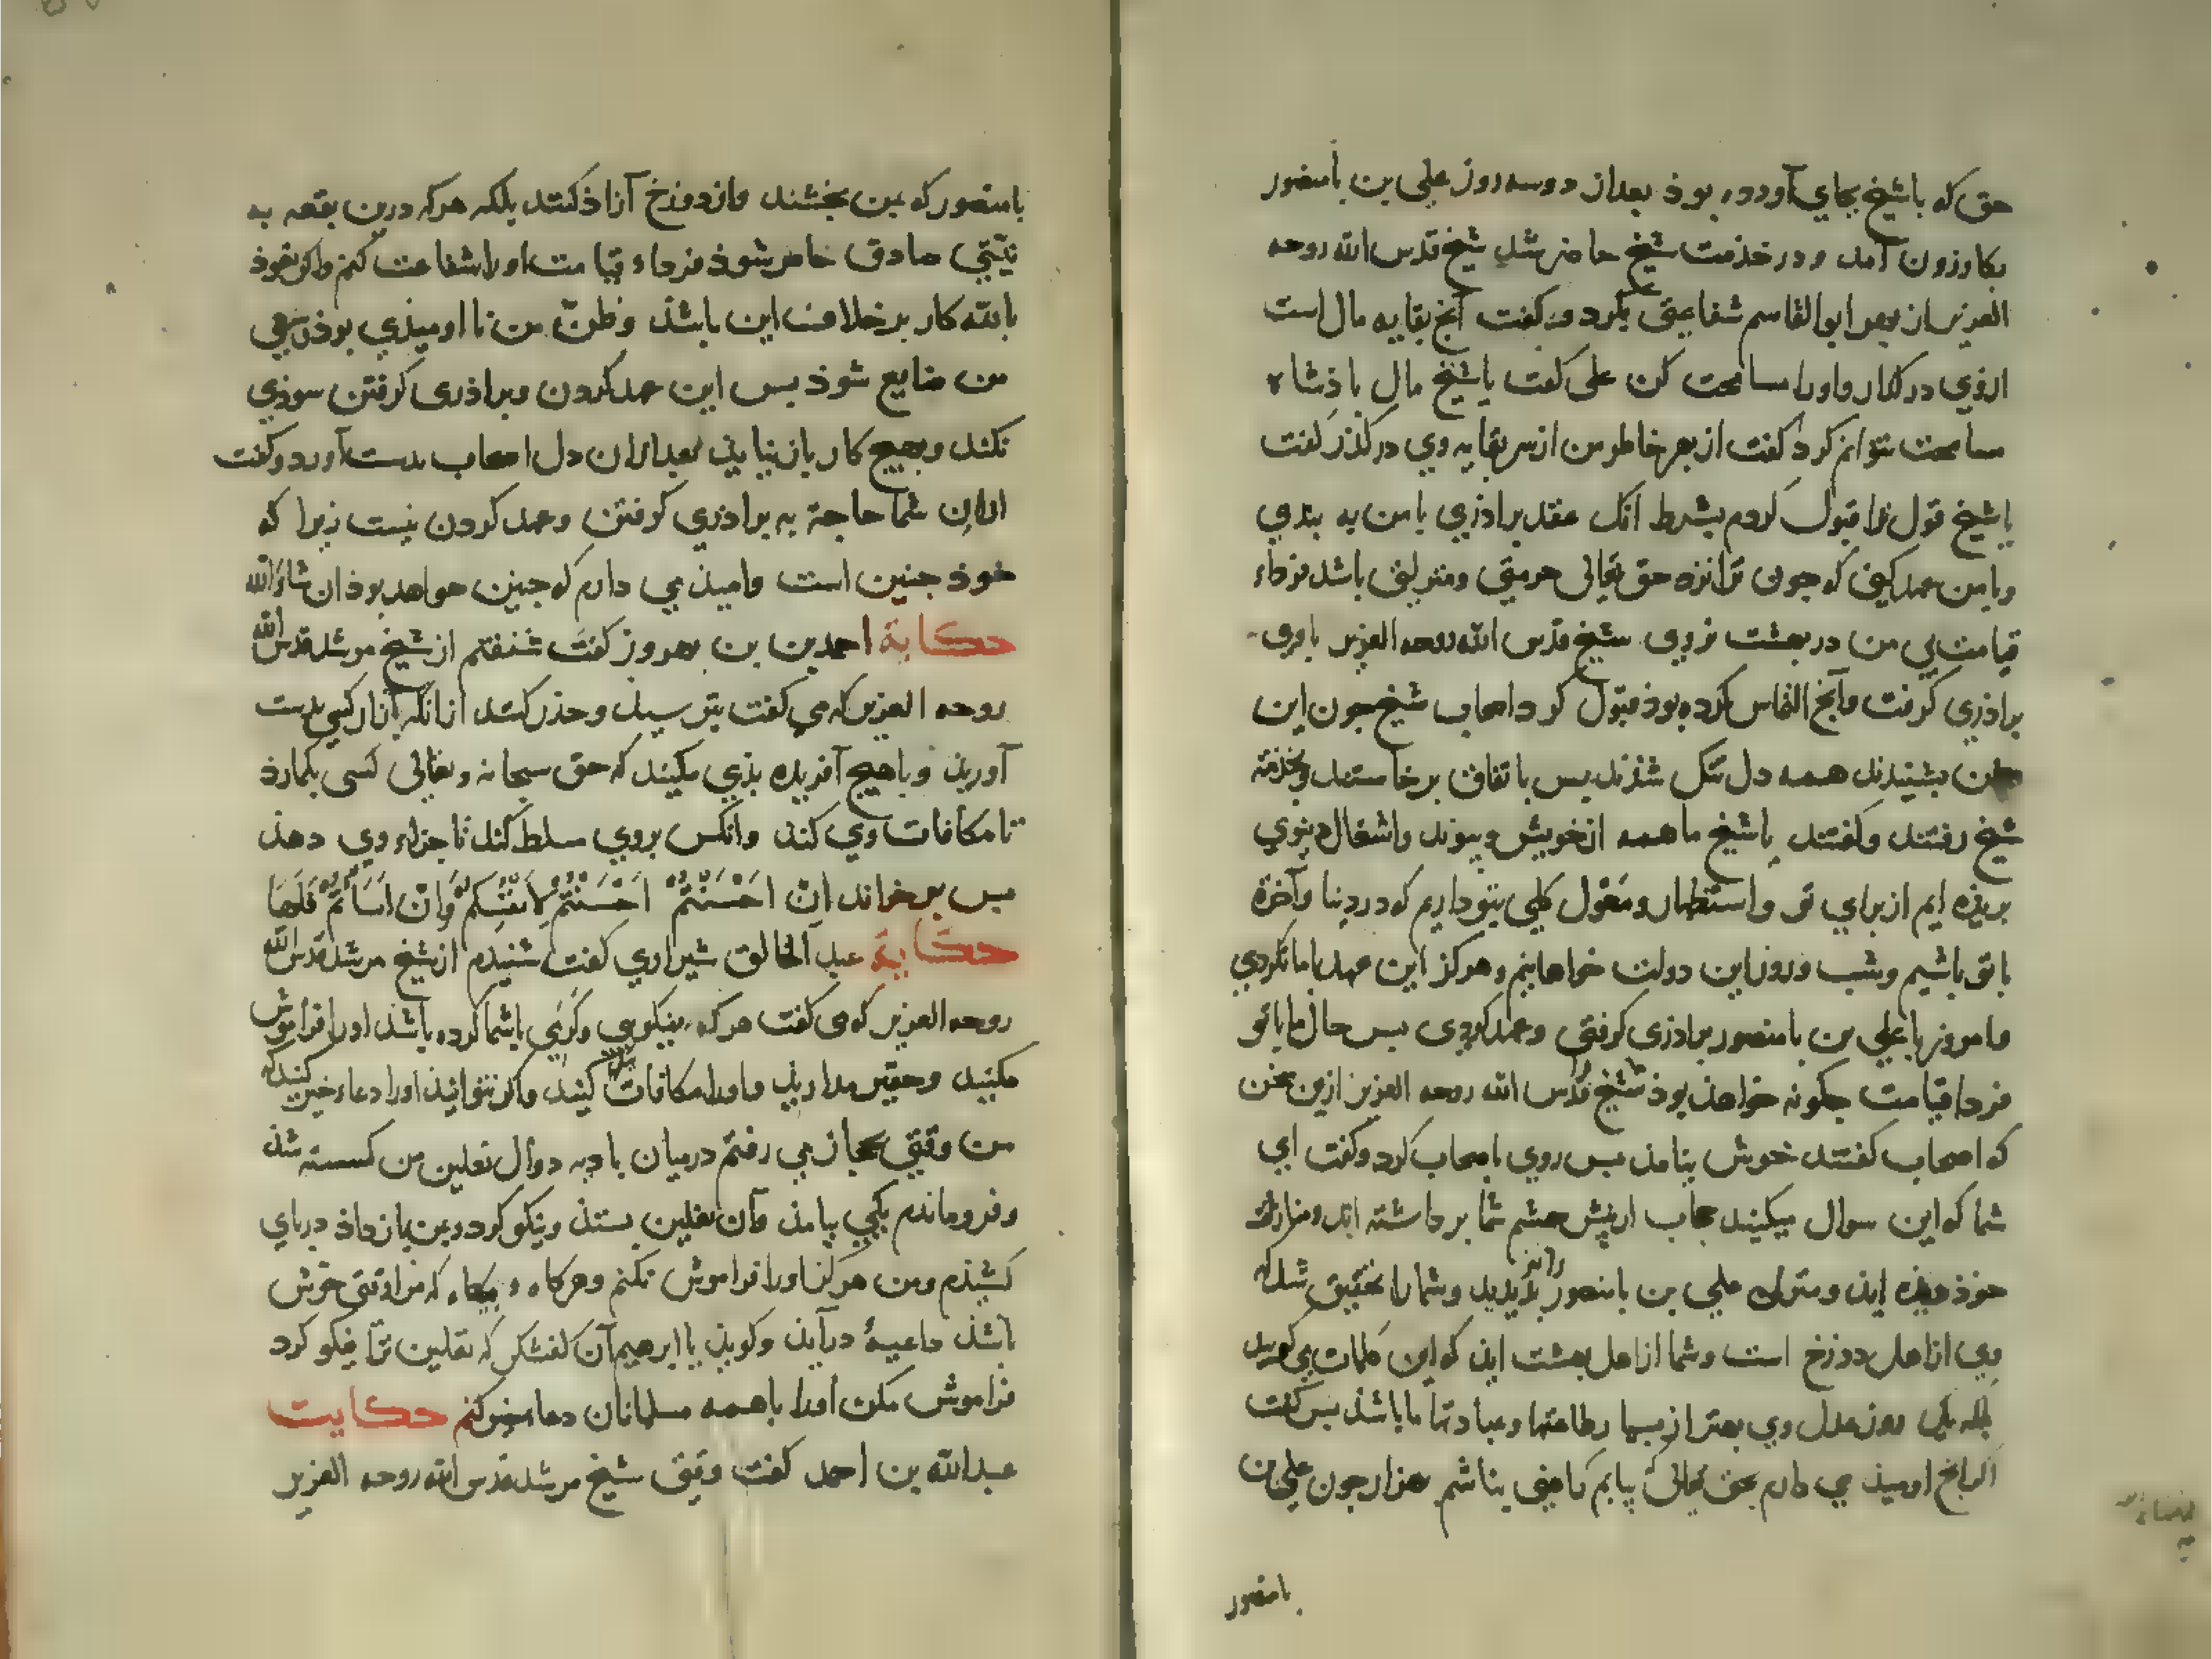 حق که باشیخ بجای آورده بوذ بعد از دو سه روز علی بن بامنصور
بکازرون آمد و در خذمت شیخ حاضر شد شیخ قدس الله روحه
العزیز از بهر ابوالقاسم شفاعتی بکرد و کفت آنج بقایه مال است
از وی در کذار و او را مسامحت کن علی کفت یا شیخ مال باذشاه
مسامحت نتوانم کرد کفت از بهر خاطر من از سر بقایه وی در کذر کفت
یا شیخ قول ترا قبول کردم بشرط انک عقد براذری با من به بندی
و با من عهد کنی که جون ترا نزد حق تعالی حرمتی و منزلتی باشد فرداء
قیامت بی من در بهشت نروی شیخ قدس الله روحه العزیز با وی
براذری کرفت و آنج التماس کرده بوذ قبول کرد اصحاب شیخ جون این
سخن بشنیدند همه دل تنک شذند بس باتفاق برخاستند و بخذمة
شیخ رفتند و کفتند یا شیخ ما همه از خویش و پیوند و اشغال دنیوی
بریذه ایم از برای تو و استظهار و معول کلی بتو داریم که در دنیا و آخرة
با تو باشیم و شب و روز این دولت خواهانیم و هرکز این عهد با ما نکردی
و امروز با علی بن بامنصور براذری کرفتی و عهد کردی بس حال ما با تو
فردا قیامت جکونه خواهذ بوذ شیخ را قدس الله روحه العزیز ازین سخن
که اصحاب کفتند خوش نیامذ بس روی باصحاب کرد و کفت ای
شما که این سوال میکنید حجاب از پیش جشم شما برداشته اند و منزلت
خوذ دیذه ایذ و منزلت علی بن بامنصور را نیز بدیدید و شما را تحقیق شد که
وی از اهل دوزخ است و شما از اهل بهشت ایذ که این کلمات می کویید
بلکه یک روز عدل وی بهتر از بسیار طاعتها و عبادتها ما باشذ بس کفت
اکر آنج اومیذ می دارم بحق تعالی بیابم راضی نباشم هزار جون علی بن
بامنصور
بامنصور که بمن بخشند و از دوزخ آزاذ کنند بلکه هرکه درین بقعه به
نیتی صادق حاضر شوذ فرداء قیامت او را شفاعت کنم و اکر نعوذ
بالله کار بر خلاف این باشذ و ظن من نا اومیذی بوذ و سعی
من ضایع شوذ بس این عهد کردن و براذری کرفتن سوذی
نکند و بهیج کار باز نیایذ بعد ازان دل اصحاب بدست آورد و کفت
الان شما حاجة به براذری کرفتن و عهد کردن نیست زیرا که
خوذ جنین است و امیذ می دارم که جنین خواهد بوذ ان شاء الله
حکایة احمد بن بن بهروز کفت شنفتم از شیخ مرشد قدس الله
روحه العزیز که می کفت بترسید و حذر کنید ازانکه آزار کسی بدست
آورید و با هیج آفریذه بذی مکنید که حق سبحانه و تعالی کسی بکمارذ
تا مکافات وی کند و انکس بر وی مسلط کند تا جزاء وی دهذ
بس بر خواند ان احسنتم احسنتم لانفسکم وان اساتم فلها
حکایة عبد الخالق شیرازی کفت شنیدم از شیخ مرشد قدس الله
روحه العزیز که می کفت هرکه نیکویی و کرمی با شما کرده باشد او را فراموش
مکنید و حقیر مدارید و او را مکافات کنید و اکر نتوانید او را دعاء خیر کنید که
من وقتی بحجاز می رفتم در میان بادیه دوال نعلین من کسسته شذ
و فرو ماندم یکی بیامذ و آن نعلین بستذ و نیکو کرد و بمن باز داذ در پای
کشیذم و من هرکز او را فراموش نکنم و هرکاه و بیکاه که مرا وقتی خوش
باشذ داعیهٔ درآیذ و کویذ یا ابرهیم آن کفشکر که نعلین ترا نیکو کرد
فراموش مکن او را با همه مسلمانان دعاء خیر کنم حکایت
عبدالله بن احمد کفت وقتی شیخ مرشد قدس الله روحه العزیز